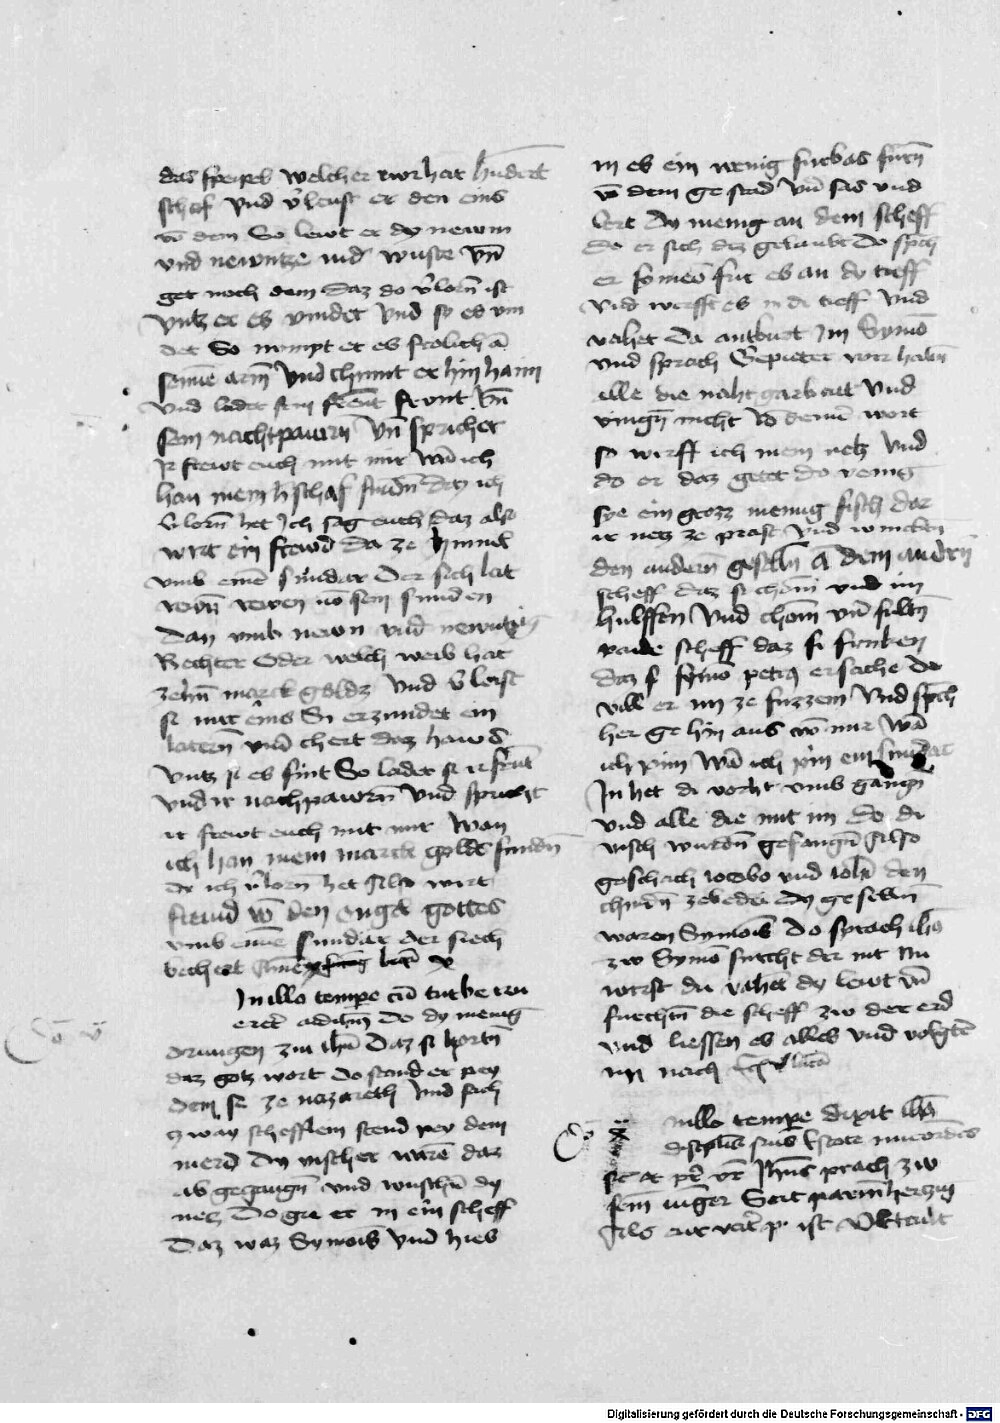 das speyel welcher ewr hat hundert
schef vnd v̉leust er den eins
vō dem So lewt er dy newn
vnd newntze in d' wuste vn̄
get noch dem daz do v̉lorn̄ ist
vntz er es vindet vnd so es vin
det So nympt er es frolich ā
seinē arm̄ vnd chumt er hin haim
vnd ladet sein frewnt vn̄
sein nachtpawrn vn̄ sprichet
Ir frewt euch mit mir wān ich
han mein schaf fundn̄ daz ich
v̉lorn̄ het Ich sag euch daz also
wirt ein frewd da ze himel
vmb einē sundar der sich lat
rewn̄ vō sein sunden
dan vmb newn vnd newntzig
Rechter Oder welch weib hat
zehn̄ marck goldz vnd v̉leust
si nur eins Si erzundet ein
latern̄ vnd chert daz haws
vntz si es fint So ladet si ir frewnt
vnd ir nachpawrn̄ vnd spricht
ir frewt euch mit mir wan
ich han mein marck golds fundn̄
die ich v̉lorn̄ het Also wirt
frewd vō den engel gottes
vmb einē sundar der sich
bechert
In illo tempore cū turbe iru
erēt ad ihm̄ Do dy menig
drungen zw ihū Daz si hortn̄
daz gotz wort Do stand er pey
dem se ze nazareth vnd sach
zway schefflein stend pey dem
mer Dy vischer warē dar
ab gegangn̄ vnd wuschē dy
netz Do gie er in ein scheff
Daz waz Symōis vnd hies
in es ein wenig furbas furn̄
vō dem gestad vn̄ sas vnd
lert dy menig an dem scheff
do er sich dez gelaubt Do sprch
er Symeō fur es an dy tieff
vnd werfft es in di tieff vnd
vahet Da antburt Im Symō
vnd sprach Gepieter wir habn̄
alle die naht garbait vnd
vingn̄ nicht Vō deinē wort
so wirff ich mein netz Vnd
do er daz getet do vieng
sye ein grozz menig fisch dar
ir netz ze prast Vnd winckten
den andern̄ geselln̄ ā dem andrn̄
scheff daz si chōm̄ vnd im
hulffen Vnd chōm̄ vn̄ fultn̄
paide scheff daz si suncken
daz Symō petrus ersache do
viel er im ze fuzzem Vnd sprch
her ge hin aus vō mir Wā
ich pin ein sundar
In het di vorht vmb gangn̄
vnd alle die mit im do di
visch wurdn̄ gefangn̄ Also
geschach iocobo vnd ioh̄i den
chindn̄ zebedei Dy geselln̄
waren Symōis Do sprach ihs
zw Symō furcht der nit Nu
wirst du vahēt dy lewt vn̄
furtn̄ die scheff zw der erd
vnd liessen es alles vnd volgtē
im nach
In illo tempore dixit ihs̄
discipulis suis Estote mi'cordes
sic et pr̄ vr̄ Ihūs sprach zw
sein iunger Seit parmherzig
Als eur vater ist